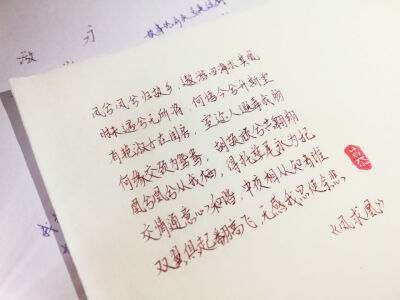 凤兮凤兮归故乡,遨游四海求其凰
时未遇兮无所将 何悟今兮升斯堂
有艳淑女在闺房,室迩人遐毒我肠
何缘交颈为鸳鸯,胡颉颃兮共翱翔
凰兮凰兮从我栖,得托孳尾永为妃
交情通意心和谐,中夜相从知者谁
双翼俱起翻高飞,无感我思使余悲
《凤求凰》